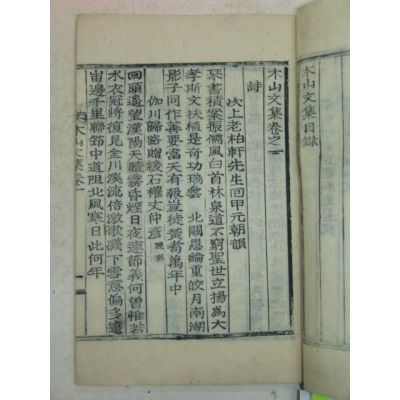 木山文集目錄
木山文集卷之一
詩
次上老柏軒先生回甲元朝韻
琴書積案振儒風白首林泉道不窮聖世立揚爲大
孝斯文扶植是奇功瑞雲北闕恩論重皎月南湖
影子同作善要當天有報豈徒黃耉萬年中
伽川歸路贈綾石權丈仲彦
回頭遙望漢陽天曉霧昏煙日夜連節義何曾惟若
水衣冠將復見金川溪流倍激漱磯下雪意偏多遠
岫邊千里聯節中道阻北風寒日此何年
木山文集卷一